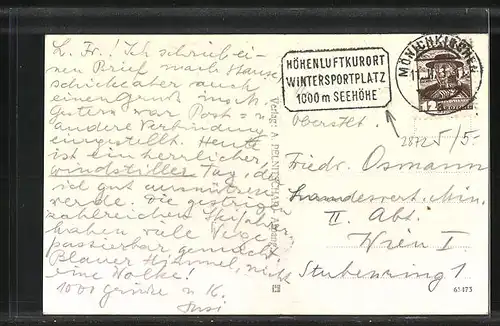 L. Fr.! Ich schrieb ei-
nen Brief nach Hause,
schicke aber auch
einen Gruß noch.
Gestern war Post= u.
andere Verbindung
eingestellt. Heute
ist ein herrlicher,
windstiller Tag, den
viel gut ausnützen
werde. Die gestrigen
zahlreichen Skifahrer
haben viele Wege
passierbar gemacht.
Blauer Himmel, nicht
eine Wolke!
1000 Grüße u. K.
Susi
Verlag A.
HÖHENLUFTKURORT
WINTERSPORTPLATZ
1000 m SEEHÖHE
MÖNICHKIRCHEN
12
Oberstlt.
2872
5/5-
Friedr. Osmann
Landesvert. Min.
II. Abt.
Wien I
Stubenring 1